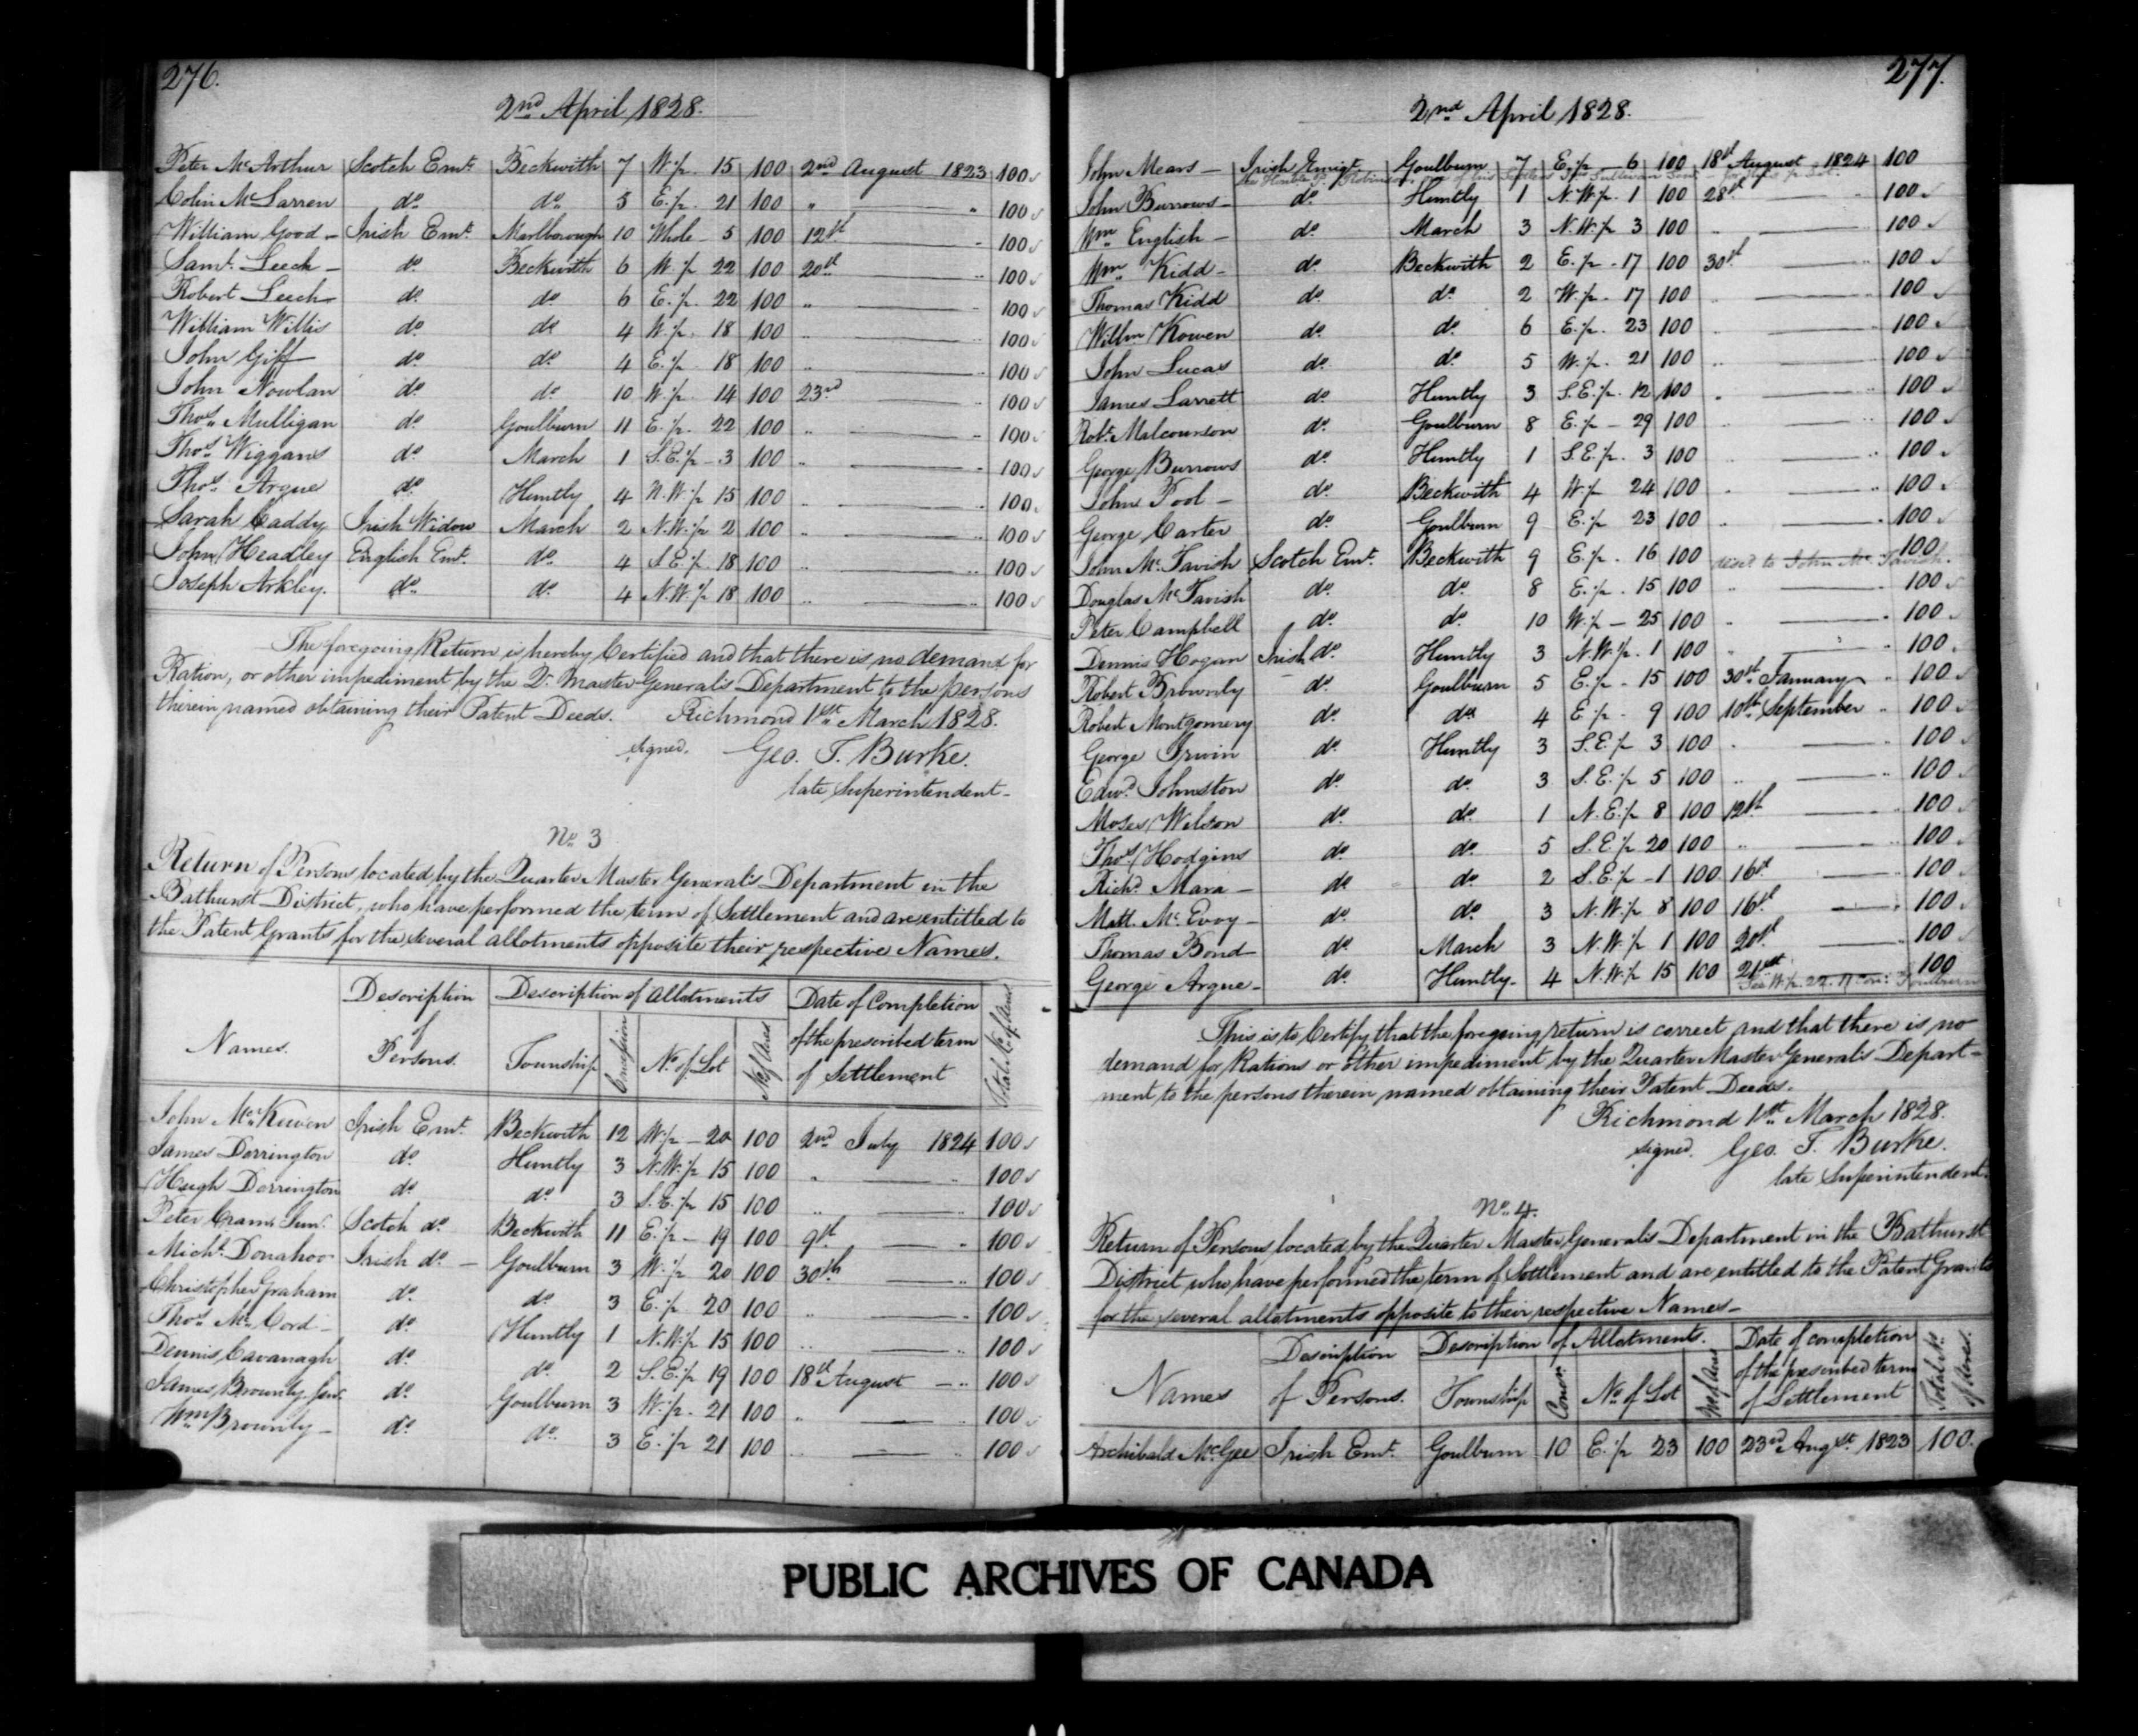 276.
2nd April 1828.
Peter McArthur Scotch Emt. Beckwith 7 W. p. 15 100 2nd August 1823 100
Colin McLarren do. do. 5 E. p. 21 100 " " 100
William Good - Irish Emt. Marlborough 10 Whole - 5 100 12th " 100
Saml. Leech - do. Beckwith 6 W. p 22 100 20th " 100
Robert Leech do. do. 6 E. p. 22 100 " 100
William Willis do. do 4 W. p. 18 100 " " 100
John Giff do. do. 4 E. p. 18 100 " " 100
John Nowlan do. do 10 W. p. 14 100 23rd " 100
Thos. Mulligan do. Goulburn 11 E. p. 22 100 " " 100
Thos. Wiggans do. March 1 S. E. p - 3 100 " " 100
Thos. Argue do. Huntly 4 N. W. p 15 100 " " 100
Sarah Caddy Irish Widow March 2 N. W. p 2 100 " " 100
John Headley English Emt. do. 4 S E. p. 18 100 " " 100
Joseph Arkley. do. do. 4 N. W. p 18 100 " " 100
The foregoing Return is hereby Certified and that there is no demand for
Ration, or other impediment by the Qr. Master General's Department to the persons
therein named obtaining their Patent Deeds. Richmond 1st March 1828.
signed. Geo. T. Burke.
late Superintendent -
No. 3
Return of Persons located by the Quarter Master General's Department in the
Bathurst District, who have performed the term of Settlement and are entitled to
the Patent Grants for the several allotments opposite their respective Names.
Names. Description of Persons. Description of Allotments Township Concession No. of Lot No. of Acres Date of Completion of the prescribed term of Settlement Total No. of Acres
John McKewen Irish Emt. Beckwith 12 W. p - 20 100 2nd July 1824 100
James Dorrington do. Huntly 3 N. W. p 15 100 " " 100
Hugh Dorrington do. do 3 S. E. p 15 100 " " 100
Peter Cram Junr. Scotch do. Beckwith 11 E. p - 19 100 9th " 100
Michl. Donahoo Irish do. - Goulburn 3 W. p 20 100 30th " 100
Christopher Graham do. do. 3 E. p. 20 100 " " 100
Thos. McCord - do. Huntly 1 N. W. p 15 100 " " 100
Dennis Cavanagh do. do. 2 S. E. p 19 100 18th August " 100
James Brownly Junr. do. Goulburn 3 W. p. 21 100 " " 100
Wm Brownly - do. do. 3 E. p 21 100 " " 100
277.
2nd April 1828.
John Mears - Irish Emigt. Goulburn 7 E. p - 6 100 18th August 1824 100
John Burrows - do. Huntly 1 N. W. p. 1 100 28th 100
Wm English - do. March 3 N. W. p 3 100 " " 100
Wm Kidd - do. Beckwith 2 E. p. - 17 100 30th " 100
Thomas Kidd do. do. 2 W. p. - 17 100 " " 100
Willm Kowen do. do. 6 E. p. 23 100 " " 100
John Lucas do. do. 5 W. p. 21 100 " " 100
James Larrett do. Huntly 3 S. E. p. 12 100 " " 100
Robt. Malcomson do. Goulburn 8 E. p - 29 100 " " 100
George Burrows do. Huntly 1 S. E. p. 3 100 " " 100
John Pool - do. Beckwith 4 W. p 24 100 " " 100
George Carter do. Goulburn 9 E. p 23 100 " " 100
John McTavish Scotch Emt. Beckwith 9 E. p. 16 100 100
to John McTavish.
Douglas McTavish do. do. 8 E. p. 15 100 " " 100
Peter Campbell do. do. 10 W. p - 25 100 " " 100
Dennis Hogan Irish do. Huntly 3 N. W. p. 1 100 " " 100
Robert Brownly do. Goulburn 5 E. p - 15 100 30th January " 100
Robert Montgomery do. do. 4 E. p - 9 100 10th September " 100
George Irwin do. Huntly 3 S. E. p 3 100 " " 100
Edwd. Johnston do. do. 3 S. E. p 5 100 " " 100
Moses Wilson do. do. 1 N. E. p 8 100 12th " 100
Thos. Hodgins do. do. 5 S. E. p 20 100 " " 100
Richd. Mara - do. do. 2 S. E. p - 1 100 16th " 100
Matt. McEvoy - do. do. 3 N. W. p 8 100 16th " 100
Thomas Bond do. March 3 N. W. p 1 100 20th " 100
George Argue - do. Huntly. 4 N. W. p 15 100 21st 100
See W. p. 22. 11 Con: Goulburn
This is to Certify that the foregoing return is correct and that there is no
demand for Rations or other impediment by the Quarter Master General's Depart-
ment to the persons therein named obtaining their Patent Deeds.
Richmond 1st March 1828.
signed. Geo. T. Burke.
late Superintendent.
No. 4.
Return of Persons located by the Quarter Master General's Department in the Bathurst
District who have performed the term of Settlement and are entitled to the Patent Grants
for the several allotments opposite to their respective Names -
Names Description of Persons. Description of Allotments. Township Conon. No. of Lot No of Acres Date of completion of the prescribed term of Settlement Total No. of Acres.
Archibald McGee Irish Emt. Goulburn 10 E. p 23 100 23rd Augst. 1823 100.
PUBLIC ARCHIVES OF CANADA